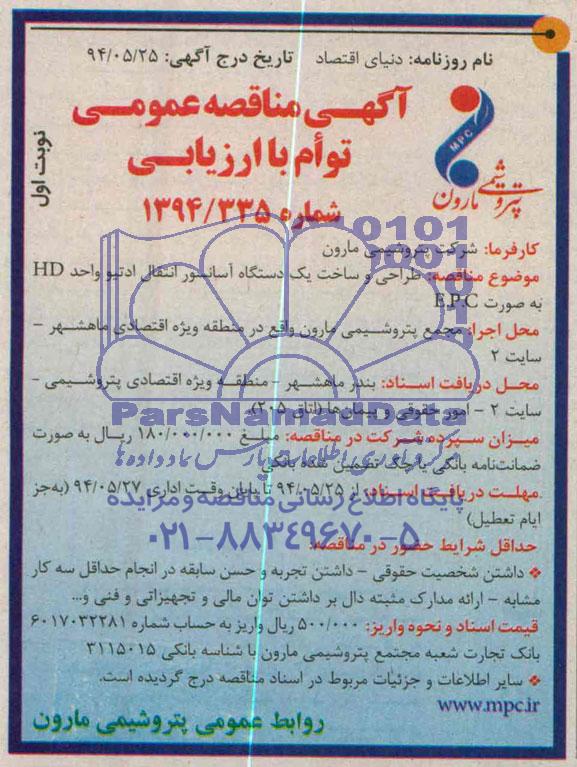 نام روزنامه: دنیای اقتصاد تاریخ درج آگهی: ۹۴/۰۵/۲۵
آگهی مناقصه عمومی
توأم با ارزیابی
شماره ۱۳۹۴/۳۳۵
نوبت اول
MPC
پتروشیمی مارون
کارفرما: شرکت پتروشیمی مارون
موضوع مناقصه: طراحی و ساخت یک دستگاه آسانسور انتقال ادتیو واحد HD
به صورت E.P.C
محل اجرا: مجمع پتروشیمی مارون واقع در منطقه ویژه اقتصادی ماهشهر -
سایت ۲
محل دریافت اسناد: بندر ماهشهر - منطقه ویژه اقتصادی پتروشیمی -
سایت ۲ - امور حقوقی و پیمان‌ها (اتاق ۲۰۵)
میزان سپرده شرکت در مناقصه: مبلغ ۱۸۰/۰۰۰/۰۰۰ ریال به صورت
ضمانت‌نامه بانکی یا چک تضمین شده بانکی
مهلت دریافت اسناد: از ۹۴/۰۵/۲۵ تا پایان وقت اداری ۹۴/۰۵/۲۷ (به‌جز
ایام تعطیل)
حداقل شرایط حضور در مناقصه:
❖ داشتن شخصیت حقوقی - داشتن تجربه و حسن سابقه در انجام حداقل سه کار
مشابه - ارائه مدارک مثبته دال بر داشتن توان مالی و تجهیزاتی و فنی و...
قیمت اسناد و نحوه واریز: ۵۰۰/۰۰۰ ریال واریز به حساب شماره ۶۰۱۷۰۳۲۲۸۱
بانک تجارت شعبه مجتمع پتروشیمی مارون با شناسه بانکی ۳۱۱۵۰۱۵
❖ سایر اطلاعات و جزئیات مربوط در اسناد مناقصه درج گردیده است.
www.mpc.ir
روابط عمومی پتروشیمی مارون
ParsNamadData
گردآوری اطلاعات پارس نماد داده‌ها
پایگاه اطلاع رسانی مناقصه و مزایده
۰۲۱-۸۸۳۴۹۶۷۰-۵